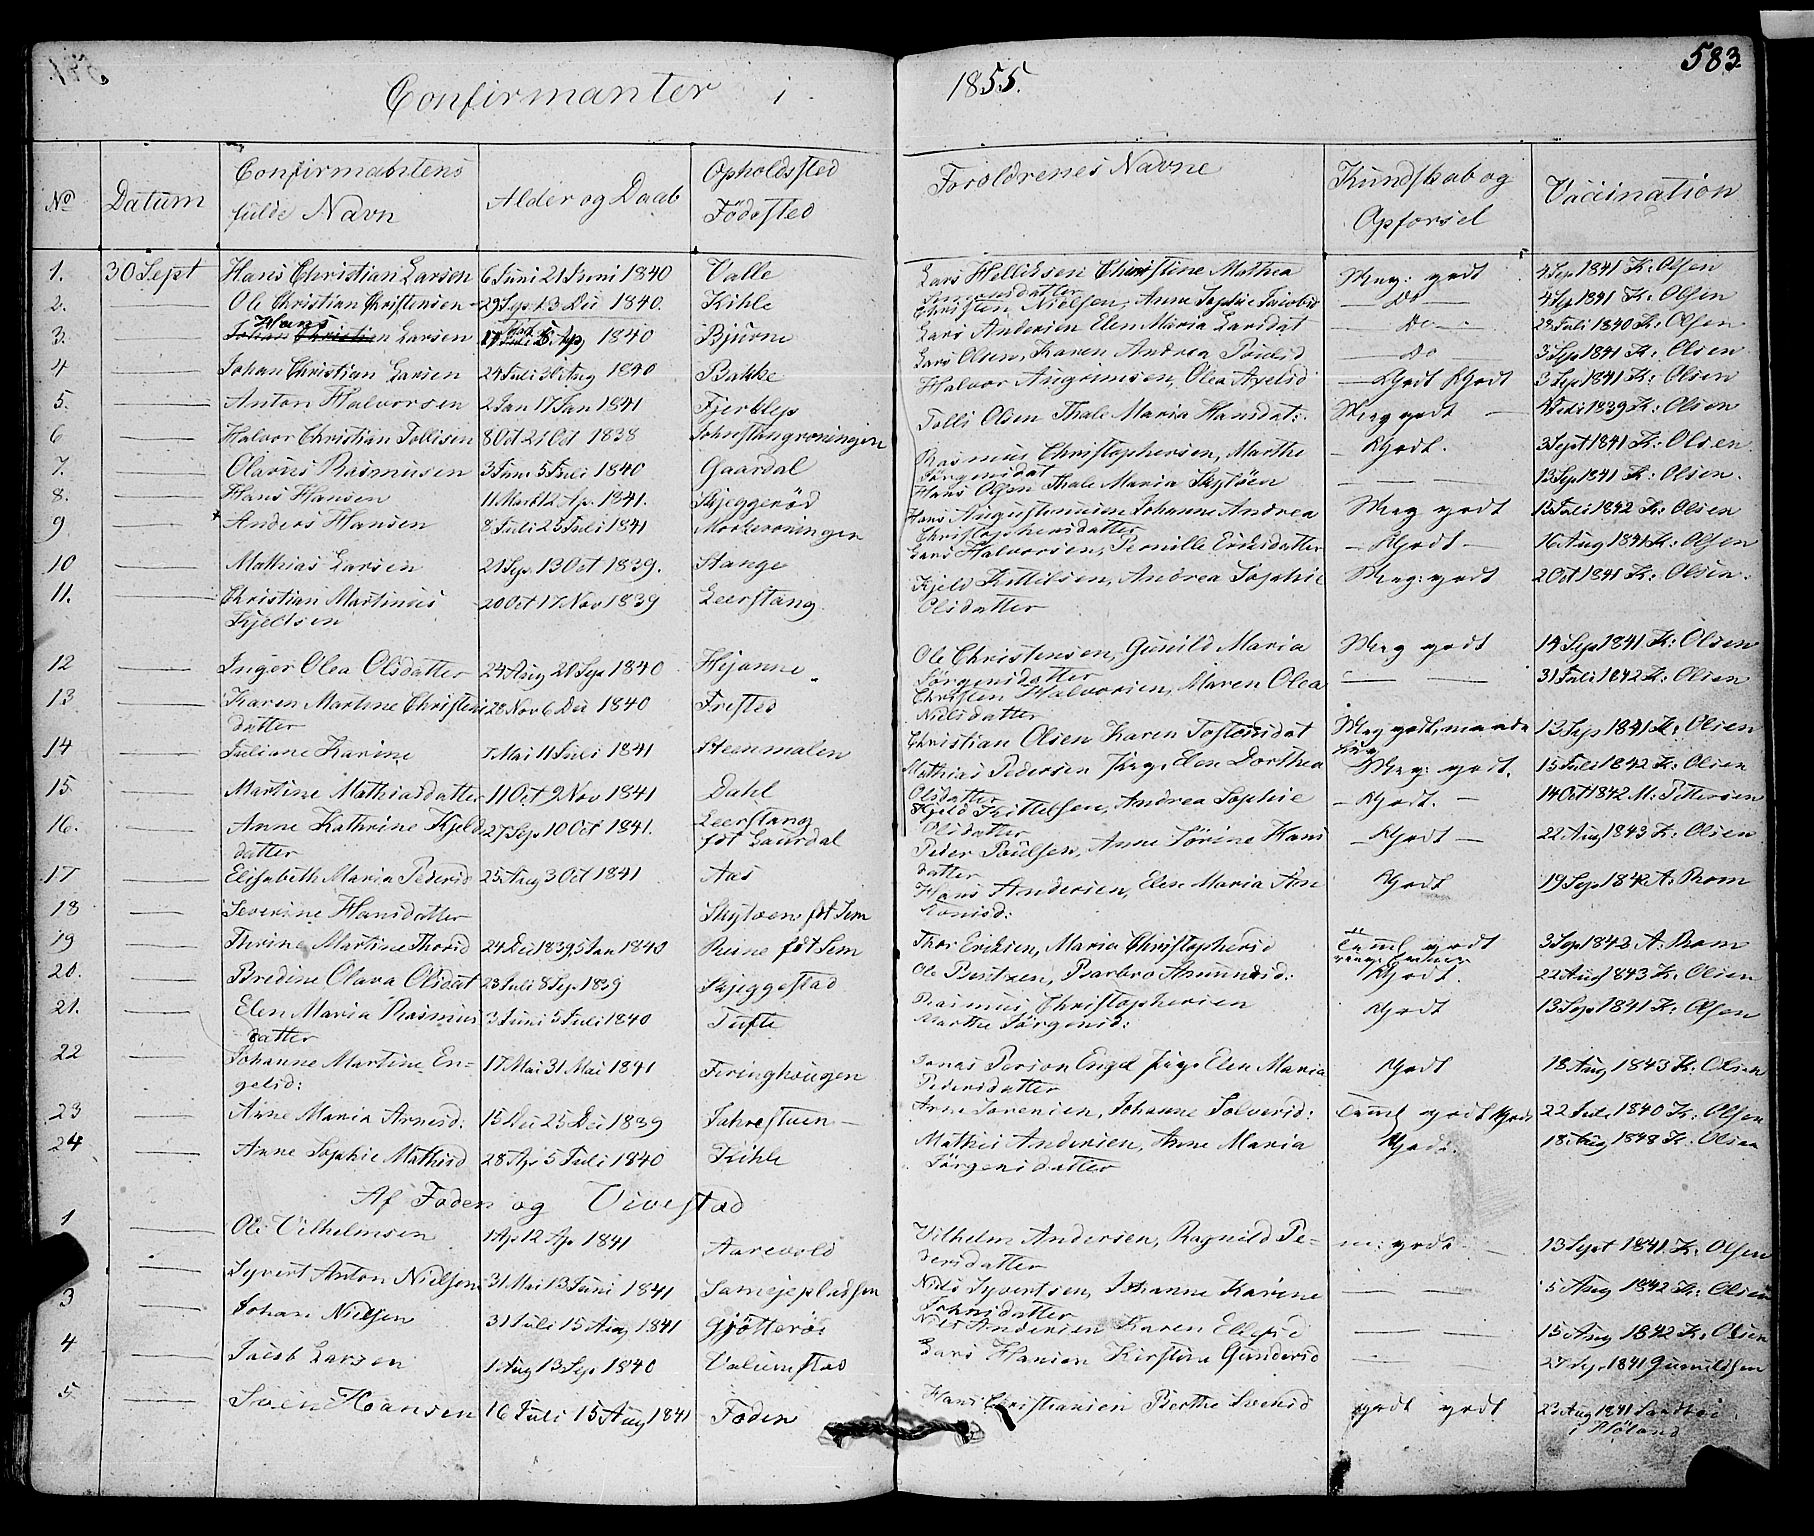 Confirmanter i 1855.
583.
No Datum Confirmantens fulde Navn Alder og Daab Opholdssted Fødested Foroldrenes Navne Kundskab og Opførsel Vaccination
1. 30 Sept Hans Christian Larsen 6 Juni 21 Juni 1840 Valle Lars Hellichsen Christine Mathea Meg: godt 4 Sep 1841 K: Olsen
2. — Ole Christian Christensen 29 Sep. 13 Dec 1840. Kihle Christen Nielsen, Anne Sophie Jacobsd — Do — 4 Sep 1841 K: Olsen
3. — Hans Larsen 5 Ap 1840 Bjurne Lars Andersen Elen Maria Larsdat — Do — 28 Juli 1840 K: Olsen
4 — Johan Christian Larsen 24 Juli 30 Aug 1840 Bakke Lars Olsen, Karen Andrea Poulsd — Do — 3 Sep 1841 K: Olsen
5. — Anton Halvorsen 2 Jan 17 Jan 1841 Fjerblep Halvor Olea Axelsd — Godt Godt 3 Sep 1841 K: Olsen
6 — Halvor Christian Tollisen 8 Oct 21 Oct 1838 Tolli Olsen Thale Maria Hansdat: Meg godt — 1839 K: Olsen
7. — Olaves Rasmusen 3 Juni 5 Juli 1840 Gaardal Rasmus Christophersen, Marthe Jørgensdat — Godt. 3 Sept 1841 K: Olsen
8. — Hans Hansen 11 Mart 12 Ap. 1841. Skjeggerød Hans Olsen Thale Maria Skytøen — — 13 Sep 1841 K: Olsen.
9 — Anders Hansen 8 Juli 25 Juli 1841 Moskeroningen Hans Augustinusen Johanne Andrea Christophersdatter Meg godt 15 Juli 1842 K: Olsen
10 — Mathias Larsen 21 Sep. 13 Oct 1839. Stange Lars Halvorsen, Pernille Ericksdatter — Godt — 16 Aug 1841 K: Olsen
11. — Christian Martinus Kjeldsen 20 Oct 17 Nov 1839 Leerstang Kjeld Kittilsen, Andrea Sophie Olsdatter Meg: godt 2 Oct 1841 K: Olsen.
12 — Inger Olea Olsdatter 24 Aug 20 Sep 1840 Hejanne Ole Christensen, Gunild Maria Jørgensdatter Meg godt 14 Sep 1841 K: Olsen
13 — Karen Martine Christensdatter 28 Nov 6 Dec 1840 Frested Christen Halvorsen, Maren Olea Nielsdatter — — 31 Juli 1842 K: Olsen
14 — Juliane Karine 7 Mai 11 Juli 1841 Steenmalen Christian Olsen Karen Tostensdat Meg godt, 13 Sep 1841 K: Olsen
15. — Martine Mathiasdatter 11 Oct 9 Nov 1841 Dahl Mathias Pedersen Pige, Elen Dorthea Olsdatter Meg: godt. 15 Juli 1842 K: Olsen
16. — Anne Kathrine Kjeldsdatter 27 Sep 10 Oct 1841. Leerstang fdt Gaurdal Kjeld Kittelsen, Andrea Sophie Olsdatter — Godt. — 14 Oct 1842 M: Pettersen
17 — Elisabeth Maria Pedersd 25 Aug 3 Oct 1841 Aas Peder Poulsen, Anne Sørine Hansdatter — Godt — 22 Aug 1843 K: Olsen
18 — Severine Hansdatter Skytøen fdt Sem Hans Andersen, Elen Maria Godt 19 Sep 1842 A: Rom
19 — Thrine Martine Thorsd 24 Dec 1839, 5 Jan 1840 Ruine fdt Sem Thor Eriksen, Maria Christophersd Taml godt 3 Sep 1842 A: Rom
20. — Bredine Olava Olsdat 23 Juli 8 Sep 1839 Skjeggestad Ole Berntzen, Barbro Amundsd: Godt. 22 Aug 1843 K: Olsen
21. — Elen Maria Rasmusdatter 3 Juni 5 Juli 1840 Tufte Rasmus Christophersen Marthe Jørgensd: Godt 13 Sep 1841 K: Olsen
22 — Johanne Martine Engelsd: 17 Mai 31 Mai 1841 Feringhougen Jonas Person Engel Pige Elen Maria Pedersdatter Godt 18 Aug 1843 K: Olsen
23 — Anne Maria Arnesd: 15 Dec 25 Dec 1839 Jahrestuen — Arne Sørensen, Johanne Solversd: Taml godt Godt 22 Juli 1840 K: Olsen
24 — Anne Sophie Mathisd 28 Ap 5 Juli 1840 Kihle Mathis Andersen, Anne Maria Jørgensdatter Godt. 18 Aug 1848 K: Olsen
Af Foden og Vivestad
1 — Ole Vilhelmsen 1 Ap 12 Ap 1841 Aarevold Vilhelm Andersen, Ragnild Pedersdatter m: godt — 13 Sept 1841 K: Olsen
— Syvert Anton Nielsen 31 Mai 13 Juni 1841 Samejepladsen Niels Syvertsen, Johanne Karine Johnsdatter — — 5 Aug 1842 K: Olsen
3 — Johan Nielsen 31 Juli 15 Aug 1841 Gjøtterøe Niels Andersen Karen Ellefsd — — 15 Aug 1842 K: Olsen
4 — Jacob Larsen 1 Aug 13 Sep 1840 Valumstad Lars Hansen Kirstine Gundersd — 27 Sep 1841 Gunnildsen
5. — Svein Hansen 16 Juli 15 Aug 1841 Foden Hans Christiansen Berthe Svensd godt godt 23 Aug 1841 Sandboe i Høland